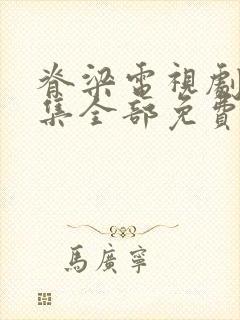 脊梁電視劇
集全部免費
馬廣寧